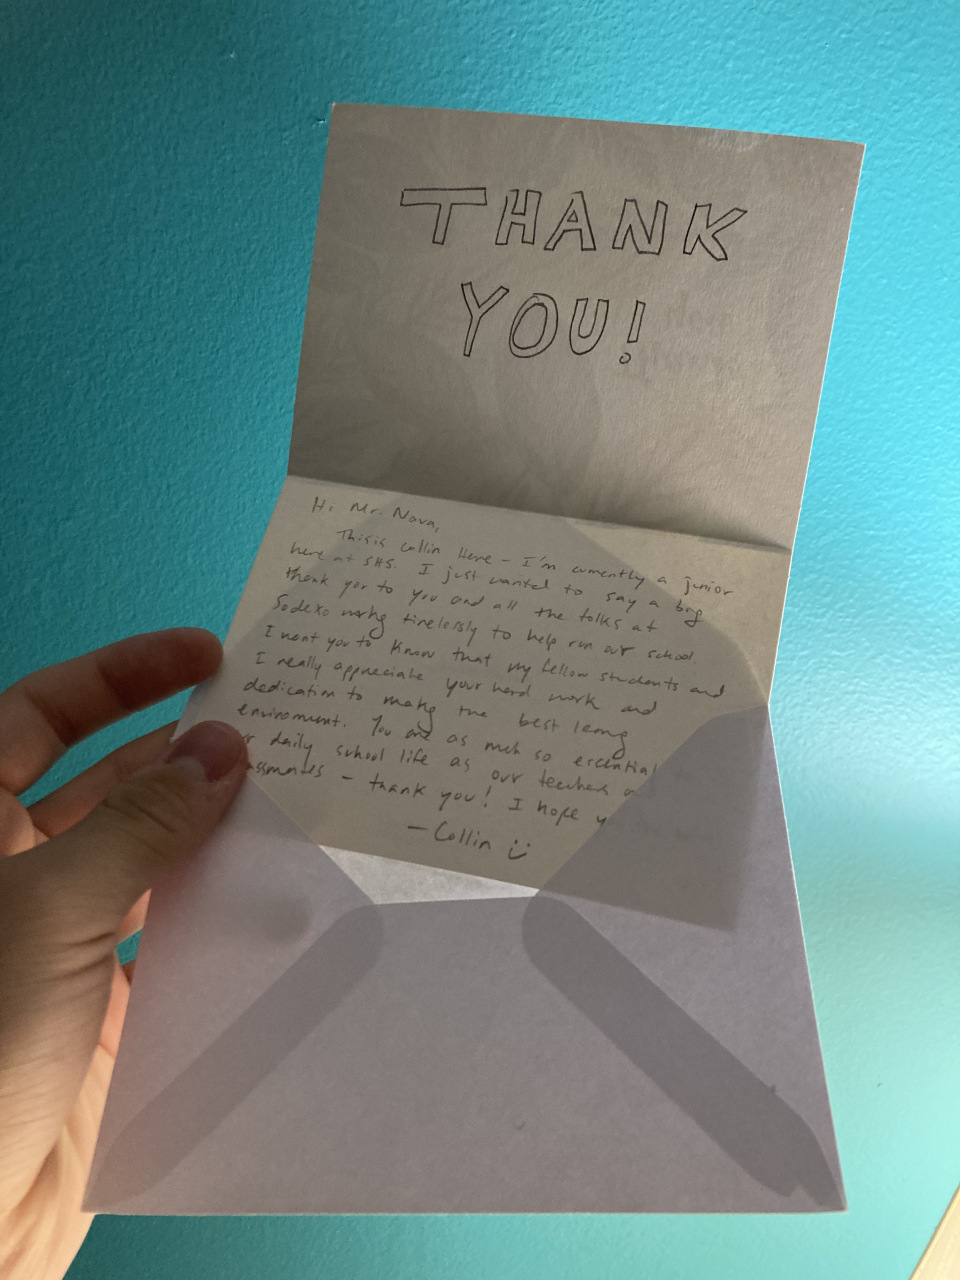 THANK
YOU!
Hi Mr. Nova,
This is Collin Here - I'm currently a junior
here at SHS. I just wanted to say a big
thank you to you and all the folks at
Sodexo workg tirelessly to help run our school.
I want you to know that my fellow students and
I really appreciate your hard work and
dedication to makg the best learng
enviroment. You are as much so essential
daily school life as our teachers
- thank you! I hope
- Collin :)